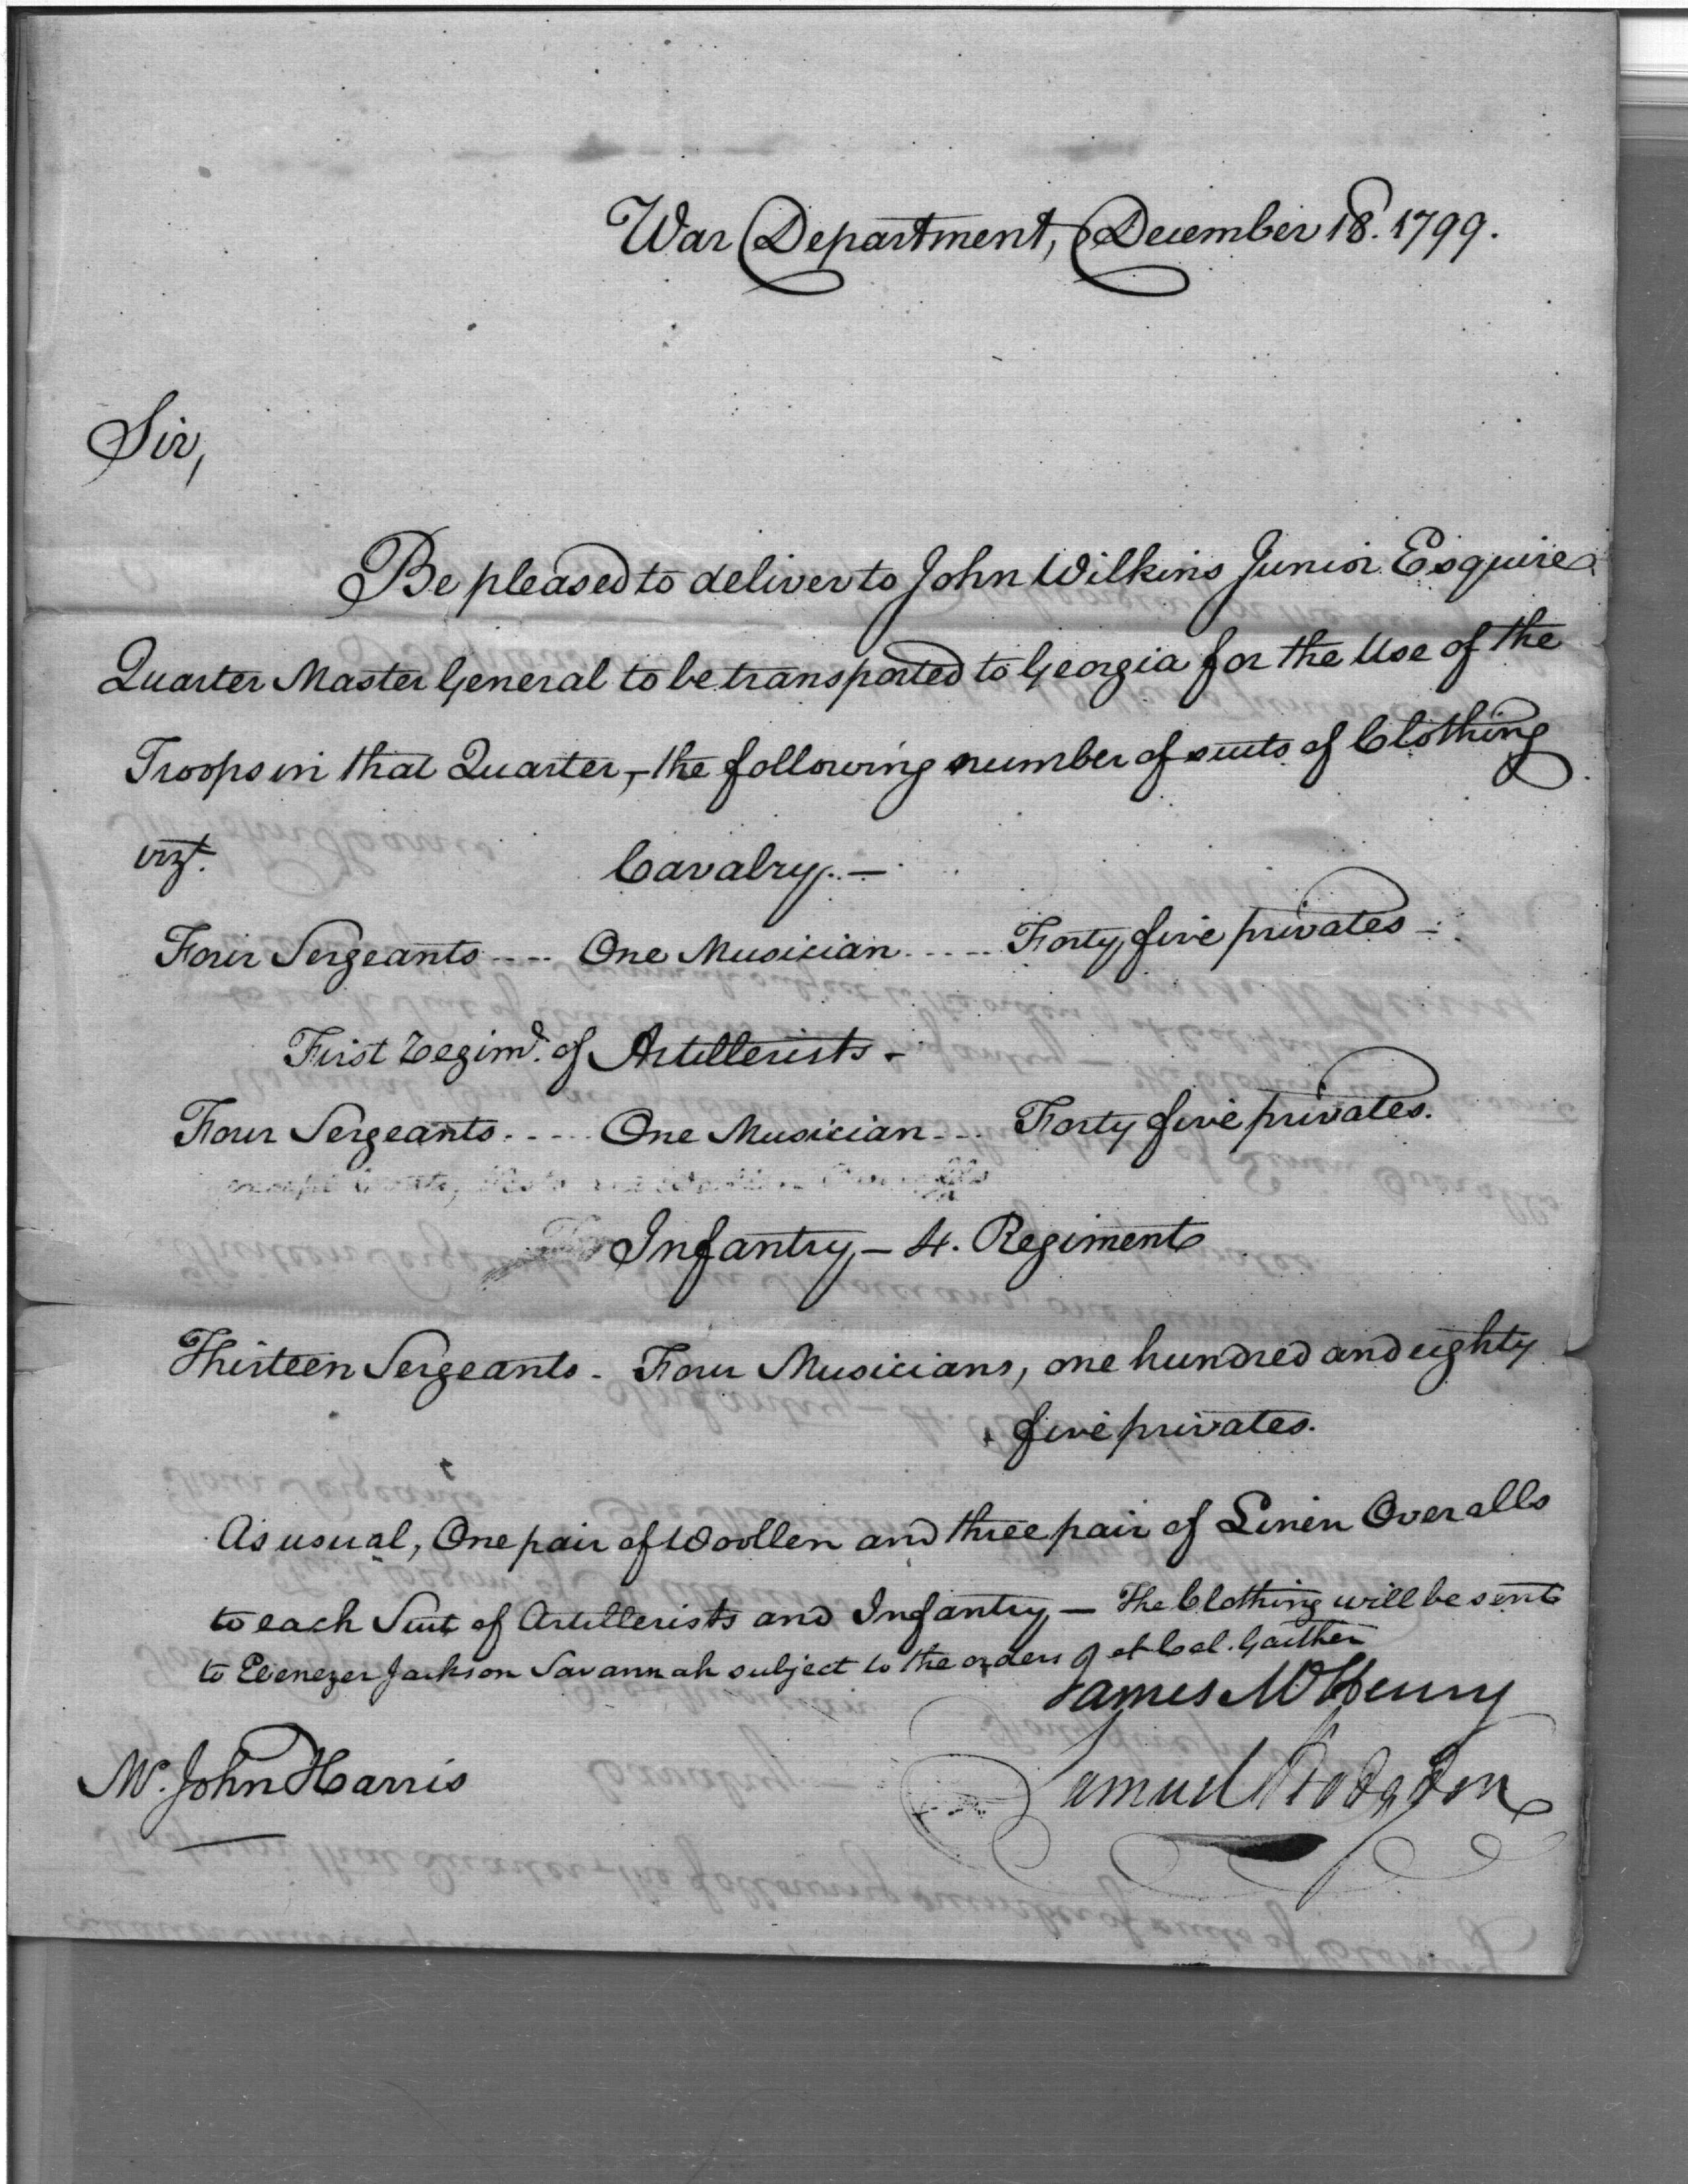 War Department, December 18. 1799.
Sir,
Be pleased to deliver to John Wilkins Junior Esquire
Quarter Master General to be transported to Georgia for the Use of the
Troops in that Quarter, - the following number of suits of Clothing
vizt. Cavalry. —
Four Sergeants .... One Musician ..... Forty five privates —
First Regimt. of Artillerists -
Four Sergeants ..... One Musician ... Forty five privates.
Infantry, — 4. Regiment
Thirteen Sergeants - Four Musicians, one hundred and eighty
five privates.
As usual, One pair of Woollen and three pair of Linen Overalls
to each Suit of Artillerists and Infantry — The Clothing will be sent
to Ebenezer Jackson Savannah subject to the orders of Lt Col. Gaither
James McHenry
Mr. John Harris
Samuel Hodgdon